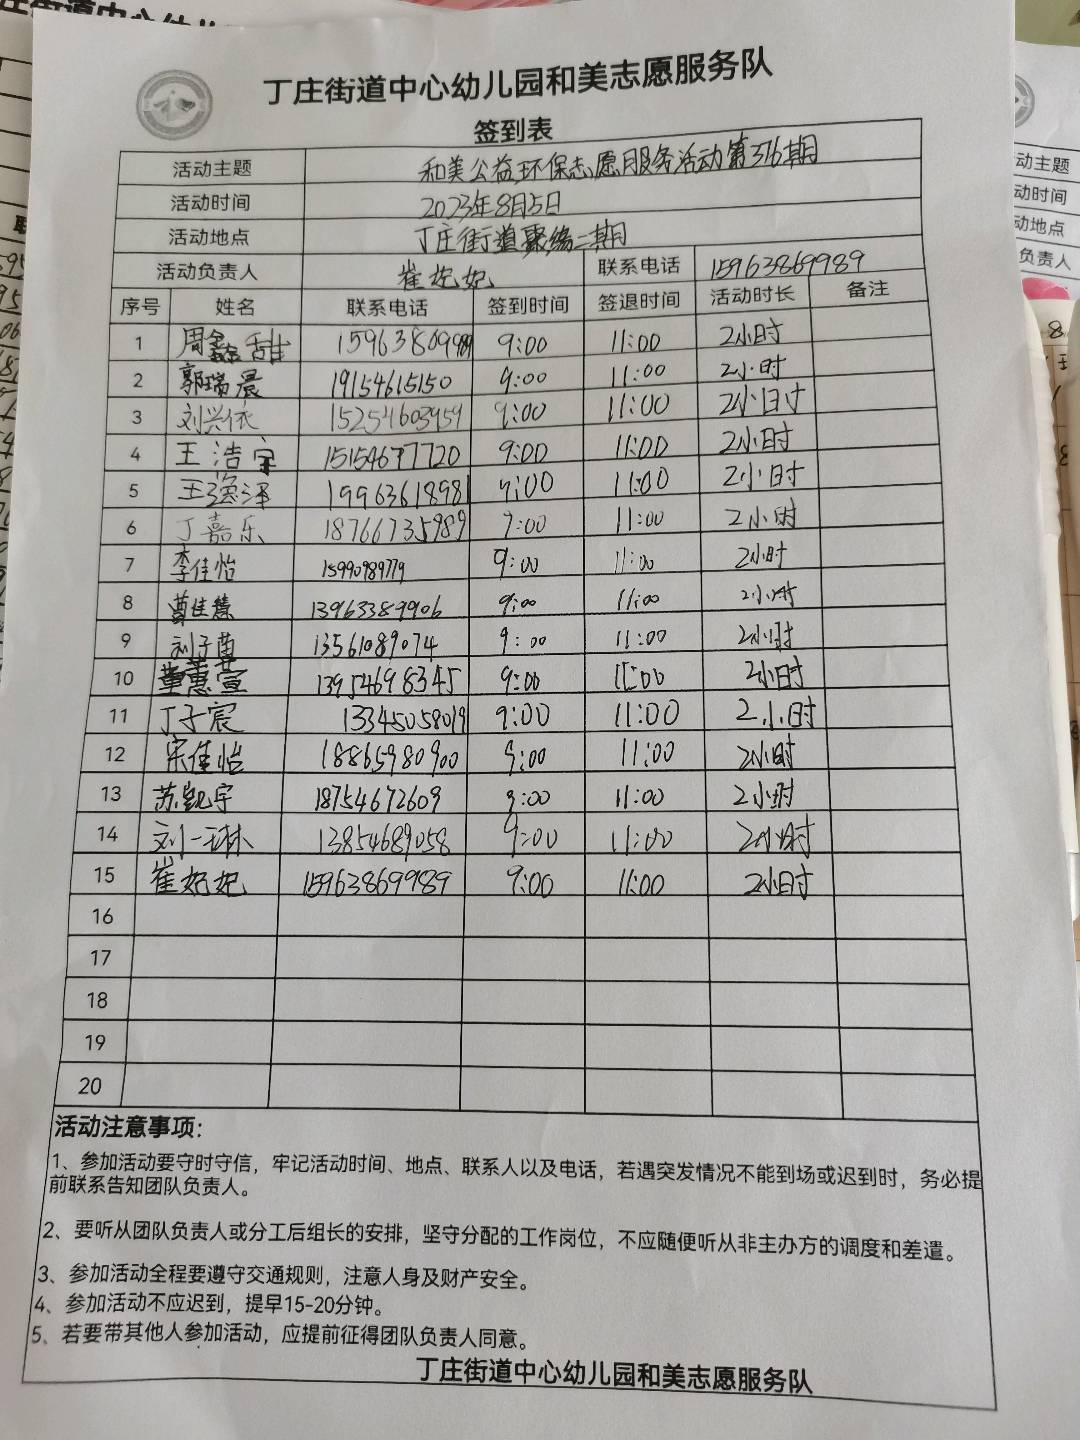 丁庄街道中心幼儿园和美志愿服务队
签到表
活动主题 和美公益环保志愿服务活动第376期
活动时间 2023年8月5日
活动地点 丁庄街道聚缘二期
活动负责人 崔妃妃 联系电话 15963869989
序号 姓名 联系电话 签到时间 签退时间 活动时长 备注
1 周鑫甜 15963869989 9:00 11:00 2小时
2 郭瑞晨 19154615150 9:00 11:00 2小时
3 刘兴依 15254603959 9:00 11:00 2小时
4 王浩宇 15154677720 9:00 11:00 2小时
5 王逸泽 19963618981 9:00 11:00 2小时
6 丁嘉乐 18766735989 9:00 11:00 2小时
7 李佳怡 15990989779 9:00 11:00 2小时
8 曹佳慧 13963389906 9:00 11:00 2小时
9 刘子茵 13561089074 9:00 11:00 2小时
10 董蕙萱 13954698345 9:00 11:00 2小时
11 丁子宸 13345058019 9:00 11:00 2小时
12 宋佳怡 18865980900 9:00 11:00 2小时
13 苏凯宇 18754672609 9:00 11:00 2小时
14 刘一琳 13854689058 9:00 11:00 2小时
15 崔妃妃 15963869989 9:00 11:00 2小时
16
17
18
19
20
活动注意事项：
1、参加活动要守时守信，牢记活动时间、地点、联系人以及电话，若遇突发情况不能到场或迟到时，务必提
前联系告知团队负责人。
2、要听从团队负责人或分工后组长的安排，坚守分配的工作岗位，不应随便听从非主办方的调度和差遣。
3、参加活动全程要遵守交通规则，注意人身及财产安全。
4、参加活动不应迟到，提早15-20分钟。
5、若要带其他人参加活动，应提前征得团队负责人同意。
丁庄街道中心幼儿园和美志愿服务队